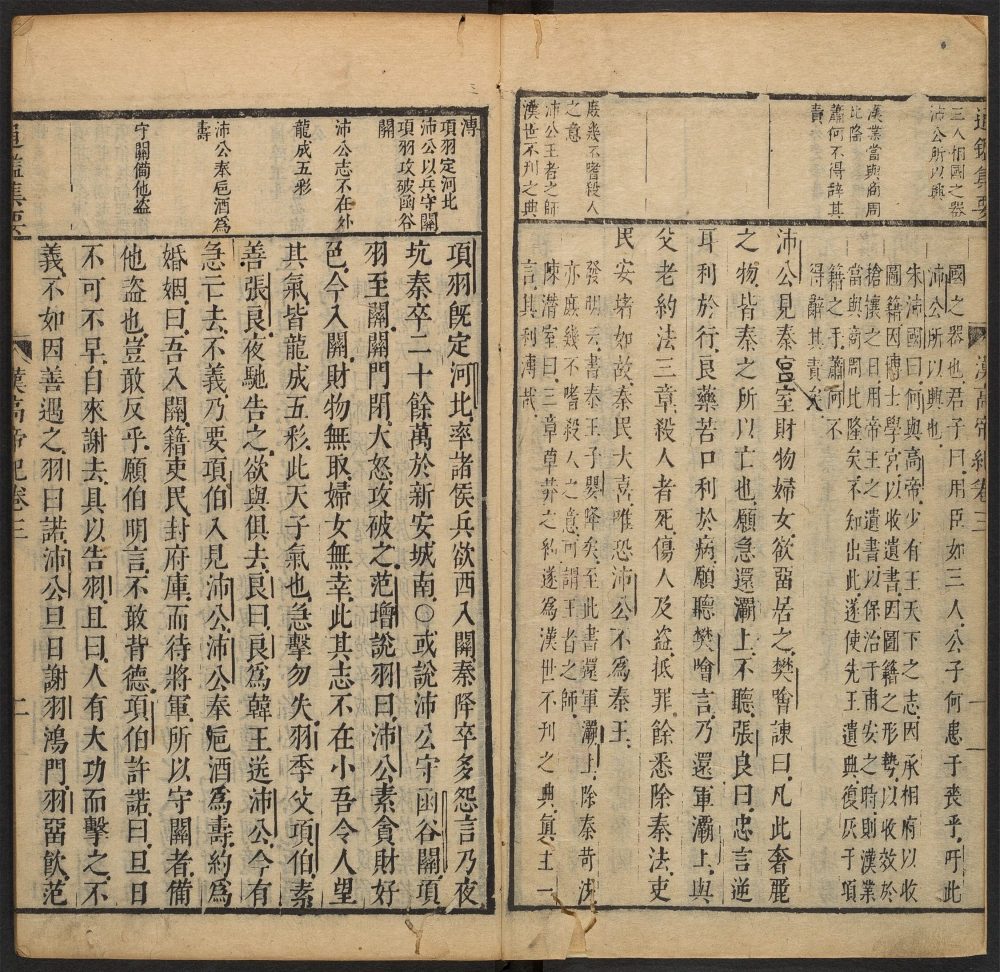 通鑑集要
三人相國之器
沛公所以興
漢業當與商周
比隆
蕭何不得辞其
責
庶幾不嗜殺人
之意
沛公王者之師
漢世不刊之典
漢高帝紀卷三
國之器也君子曰用臣如三人公子何患于丧乎吁此
沛公所以興也
朱沛國曰何與高帝少有王天下之志因承相府以收
圖籍因博士學宫以收遺書因圖籍之形勢以收效於
搶攘之日用帝王之遺書以保治于甫安之時則漢業
當與商周比隆矣不知出此遂使先王遺典復灰于項
籍之手蕭何不
得辭其責矣
沛公見秦宮室財物婦女欲畱居之樊噲諫曰凡此奢麗
之物皆秦之所以亡也願急還灞上不聽張良曰忠言逆
耳利於行良藥苦口利於病願聽樊噲言乃還軍灞上與
父老約法三章殺人者死傷人及盗抵罪餘悉除秦法吏
民安堵如故秦民大喜唯恐沛公不爲秦王
發明云書秦王子嬰降矣至此書還軍灞上除秦苛法
亦庶幾不嗜殺人之意可謂王者之師
陳濳室曰三章草莽之私遂爲漢世不刊之典眞主一
言其利溥哉
一
溥
項羽定河北
沛公以兵守關
項羽攻破函谷
關
沛公志不在外
龍成五彩
沛公奉巵酒爲
壽
守關備他盗
項羽旣定河北率諸侯兵欲西入關秦降卒多怨言乃夜
坑秦卒二十餘萬於新安城南○或說沛公守函谷關項
羽至關關門閉大怒攻破之范增說羽曰沛公素貪財好
色今入關財物無取婦女無幸此其志不在小吾令人望
其氣皆龍成五彩此天子氣也急擊勿失羽季父項伯素
善張良夜馳告之欲與俱去良曰良爲韓王送沛公今有
急亡去不義乃要項伯入見沛公沛公奉巵酒爲壽約爲
婚姻曰吾入關籍吏民封府庫而待將軍所以守關者備
他盗也豈敢反乎願伯明言不敢背德項伯許諾曰旦日
不可不早自來謝去具以告羽且曰人有大功而擊之不
義不如因善遇之羽曰諾沛公旦日謝羽鴻門羽畱飮范
通鑑集要
漢高帝紀卷三
二